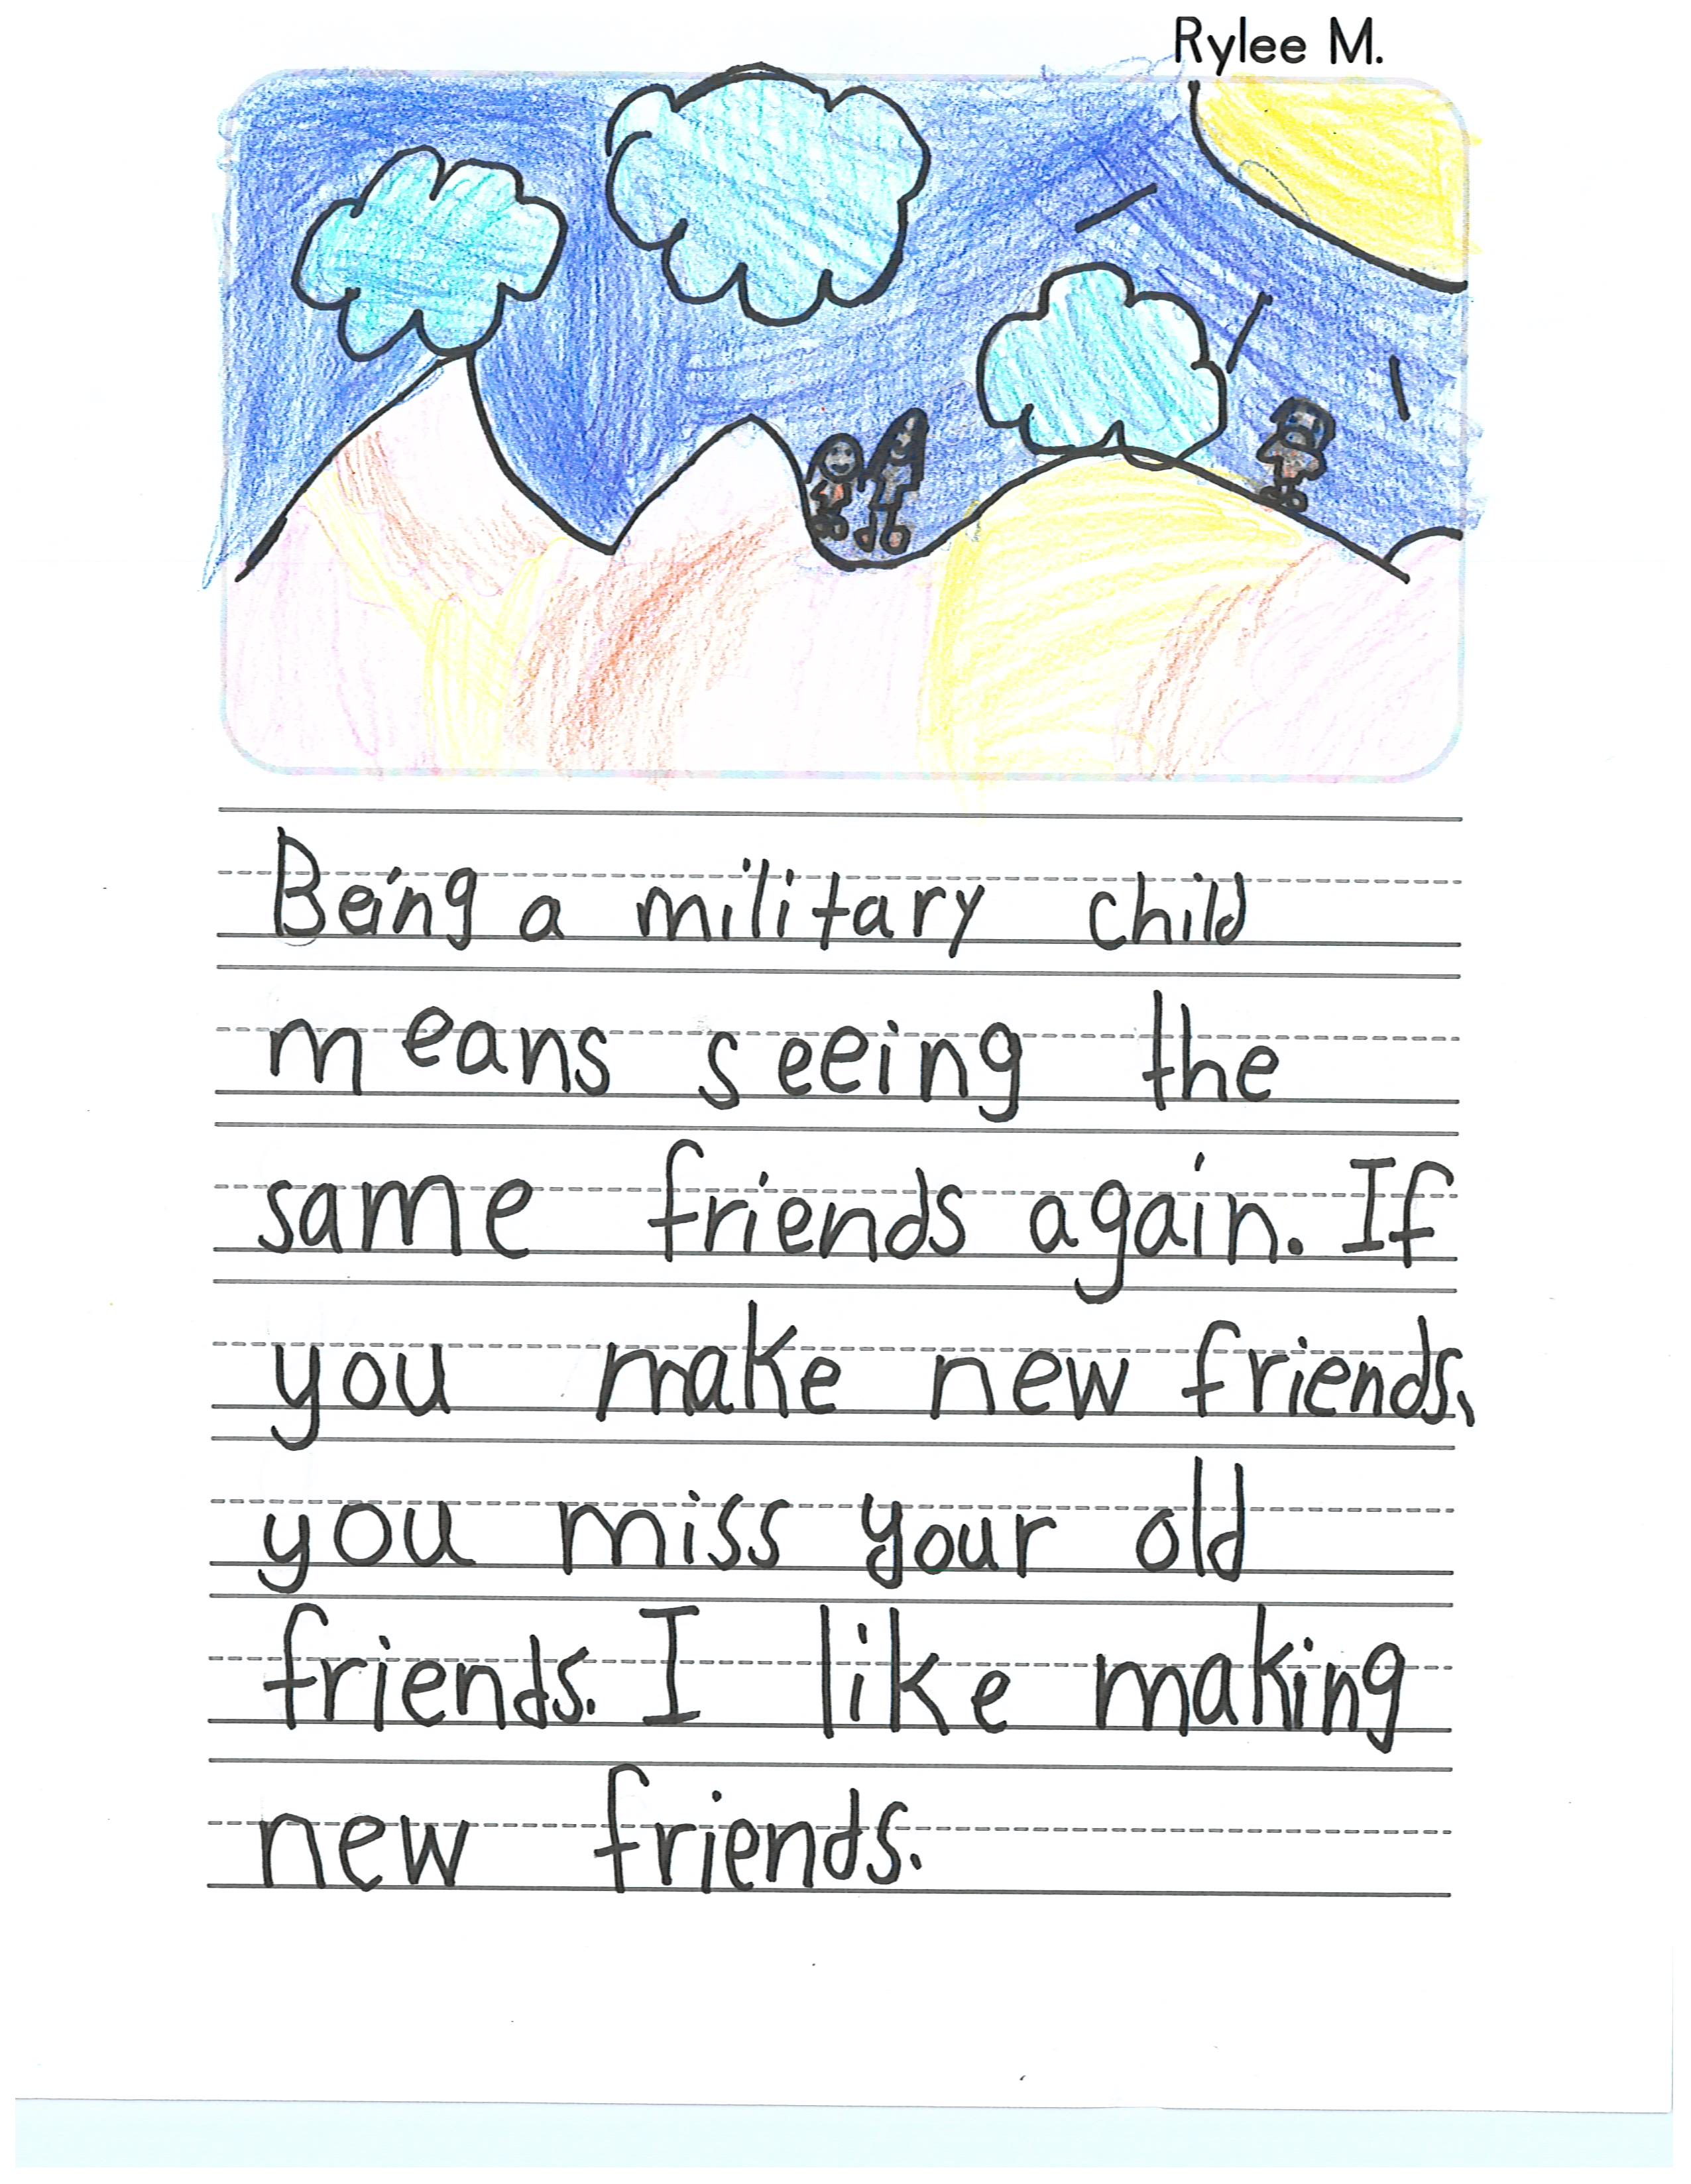 Rylee M.
Being a military child
means seeing the
same friends again. If
you make new friends,
you miss your old
friends. I like making
new friends.